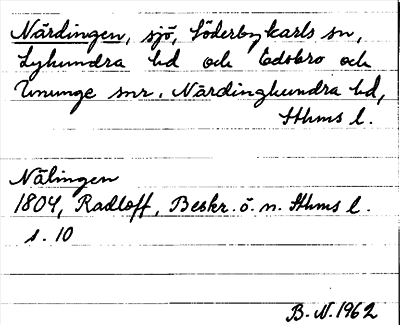 Närdingen, sjö, Söderbykarls sn,
Lyhundra hd och Edsbro och
Ununge snr. Närdinghundra hd,
Sthms l.
Nälingen
1804, Radloff, Beskr. ö. n. Sthms l.
s. 10
B. N. 1962